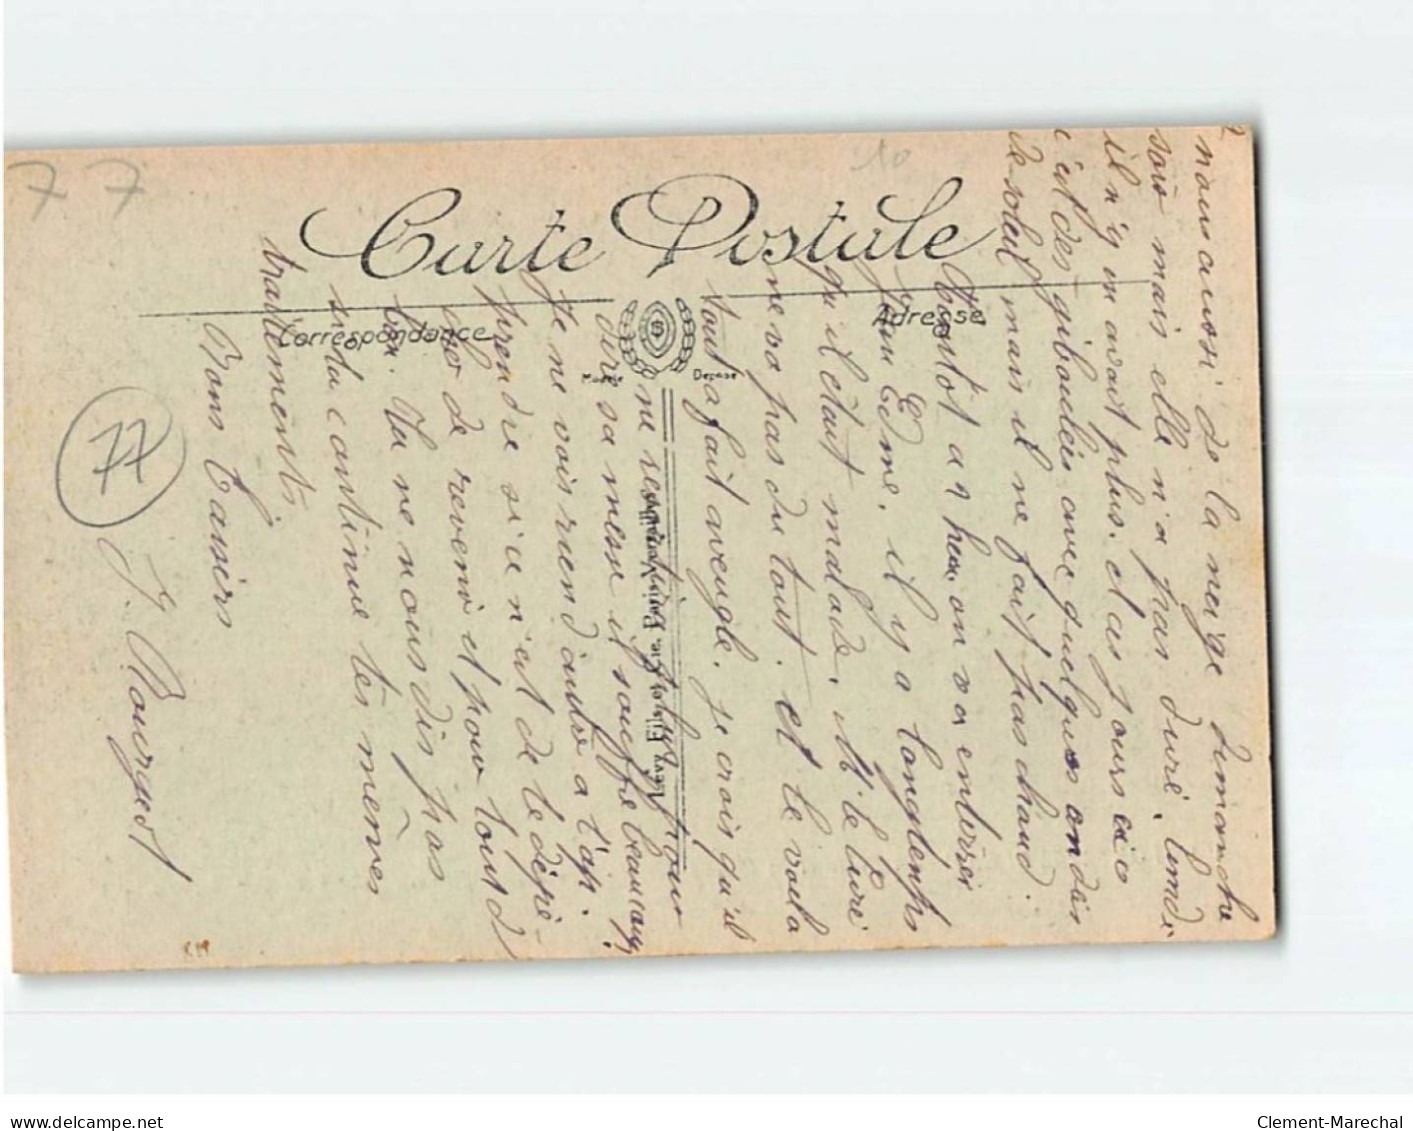 77
10
Carte Postale
Correspondance
Adresse
Marque Déposée
Lévy Fils et Cie, Paris
2
nous aussi de la neige dimanche
soir mais elle n'a pas duré, lundi
il n'y en avait plus. et ces jours ci
c'est des giboulées avec quelques ondées
de soleil mais il ne fait pas chaud.
tantôt a 9 heu. on va enterrer
Jean Edme, il y a longtemps
qu'il était malade, M. le Curé
ne va pas du tout. et le voila
tout a fait aveugle. je crois qu'il
ne plus pour
dire sa messe il souffre beaucoup
Je ne vois rien d'autre a t'ap.
prendre si ce n'est de te dépê-
cher de revenir et pour tout de
bon. Tu ne nous dis pas
si tu continue tes mêmes
traitements
Bons Baisers
J. Bourguet
77